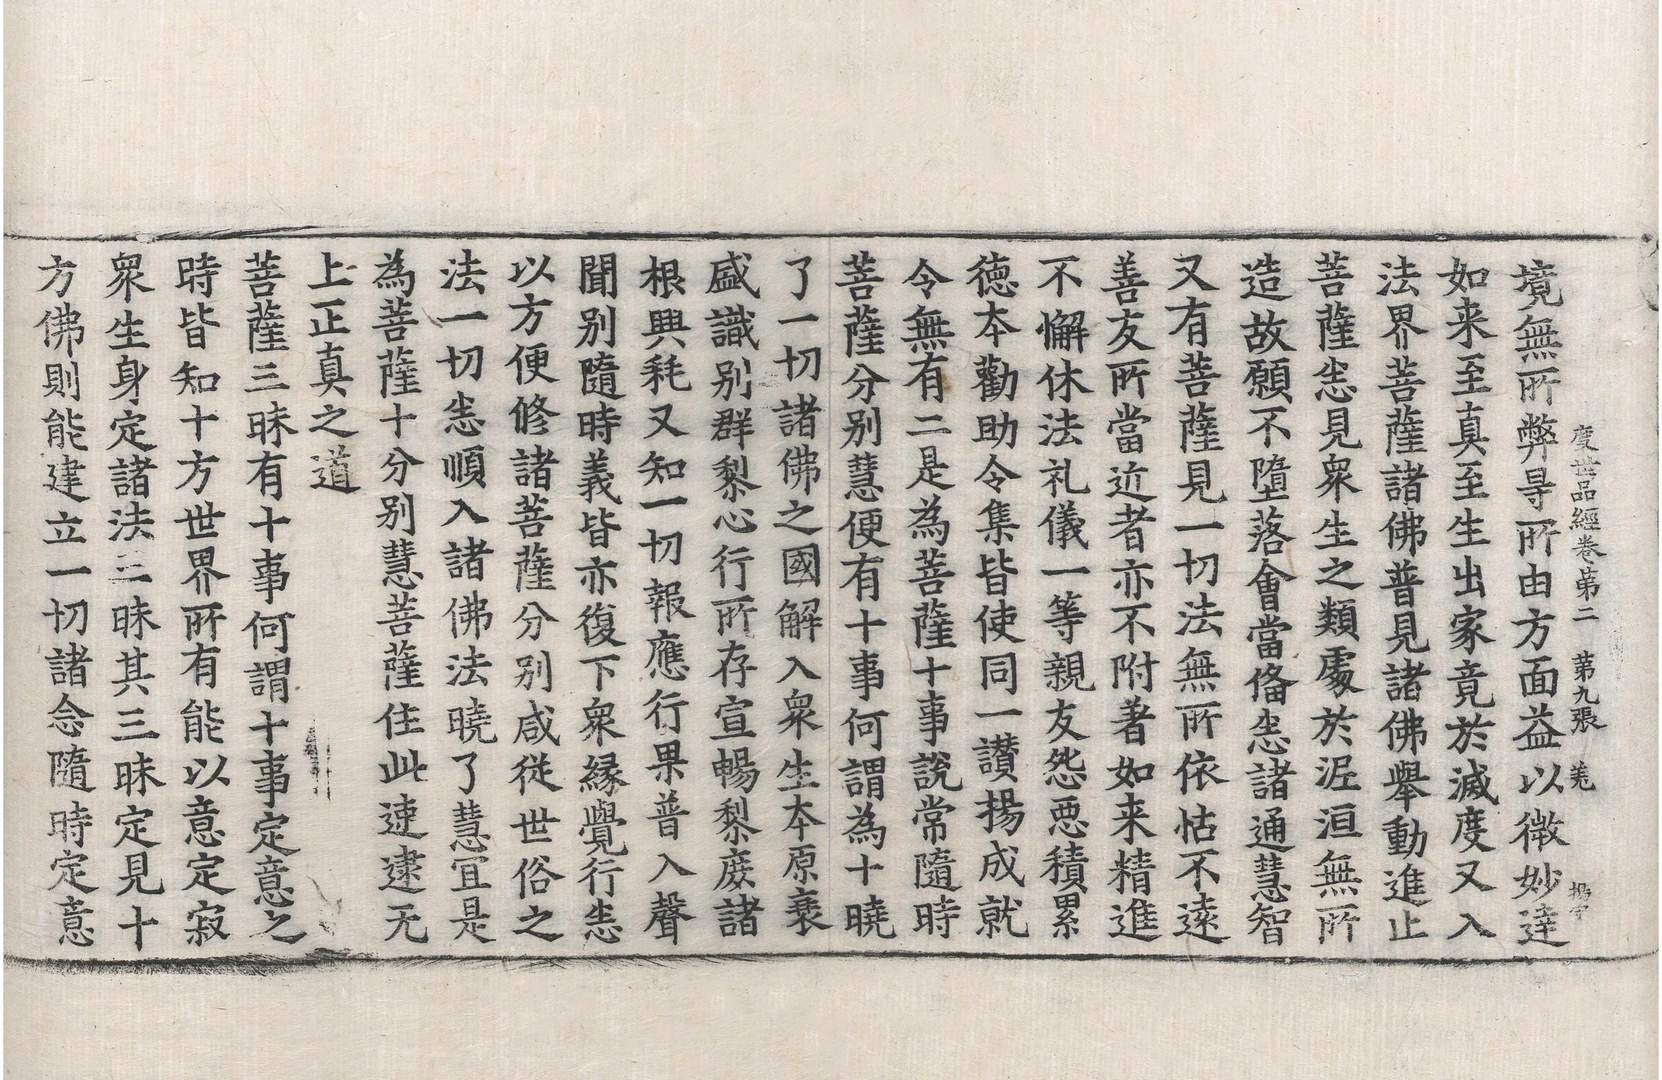 度世品經卷第二 第九張 羗
境無所弊㝵所由方面益以微妙達
如来至真至生出家竟於滅度又入
法界菩薩諸佛普見諸佛舉動進止
菩薩悉見衆生之類處於泥洹無所
造故願不墮落會當俻悉諸通慧智
又有菩薩見一切法無所依怙不遠
善友所當近者亦不附著如来精進
不懈休法礼儀一等親友怨惡積累
德夲勸助令集皆使同一讃揚成就
令無有二是為菩薩十事說常隨時
菩薩分别慧便有十事何謂為十曉
了一切諸佛之國解入衆生夲原衰
盛識别群黎心行所存宣暢黎庻諸
根興耗又知一切報應行果普入聲
聞别隨時義皆亦復下衆緣覺行悉
以方便修諸菩薩分别咸從世俗之
法一切悉順入諸佛法曉了慧冝是
為菩薩十分别慧菩薩住此速逮无
上正真之道
菩薩三昧有十事何謂十事定意之
時皆知十方世界所有能以意定寂
衆生身定諸法三昧其三昧定見十
方佛則能建立一切諸念隨時定意